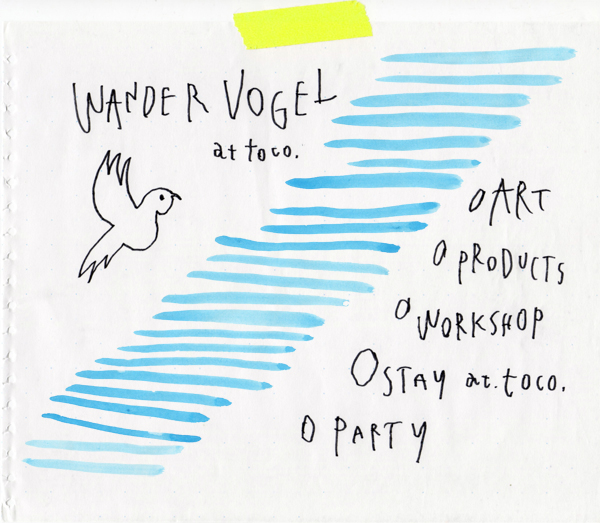 WANDER VOGEL
at toco.
O ART
O PRODUCTS
O WORKSHOP
O STAY at.toco.
O PARTY